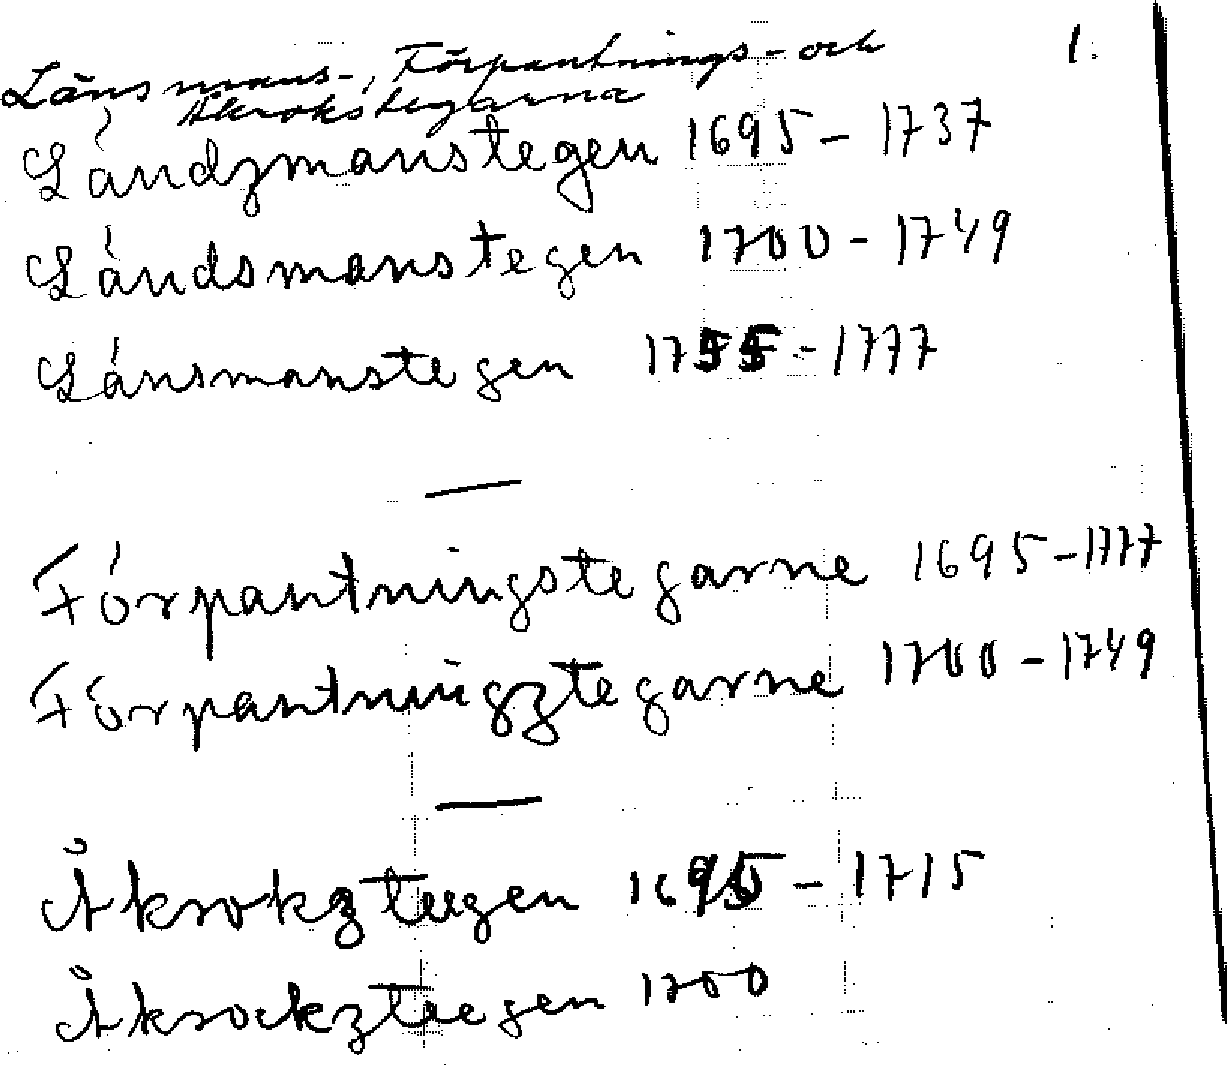 Länsmans-, Förpantnings- och 1.
Åkrokstegarna
Ländzmanstegen 1695 - 1737
Ländsmanstegen 1700 - 1749
Länsmanstegen 1755 - 1777
Förpantningstegarne 1695 - 1777
Förpantningztegarne 1700 - 1749
Åkrokzteegen 1695 - 1715
Åkrockzteegen 1700